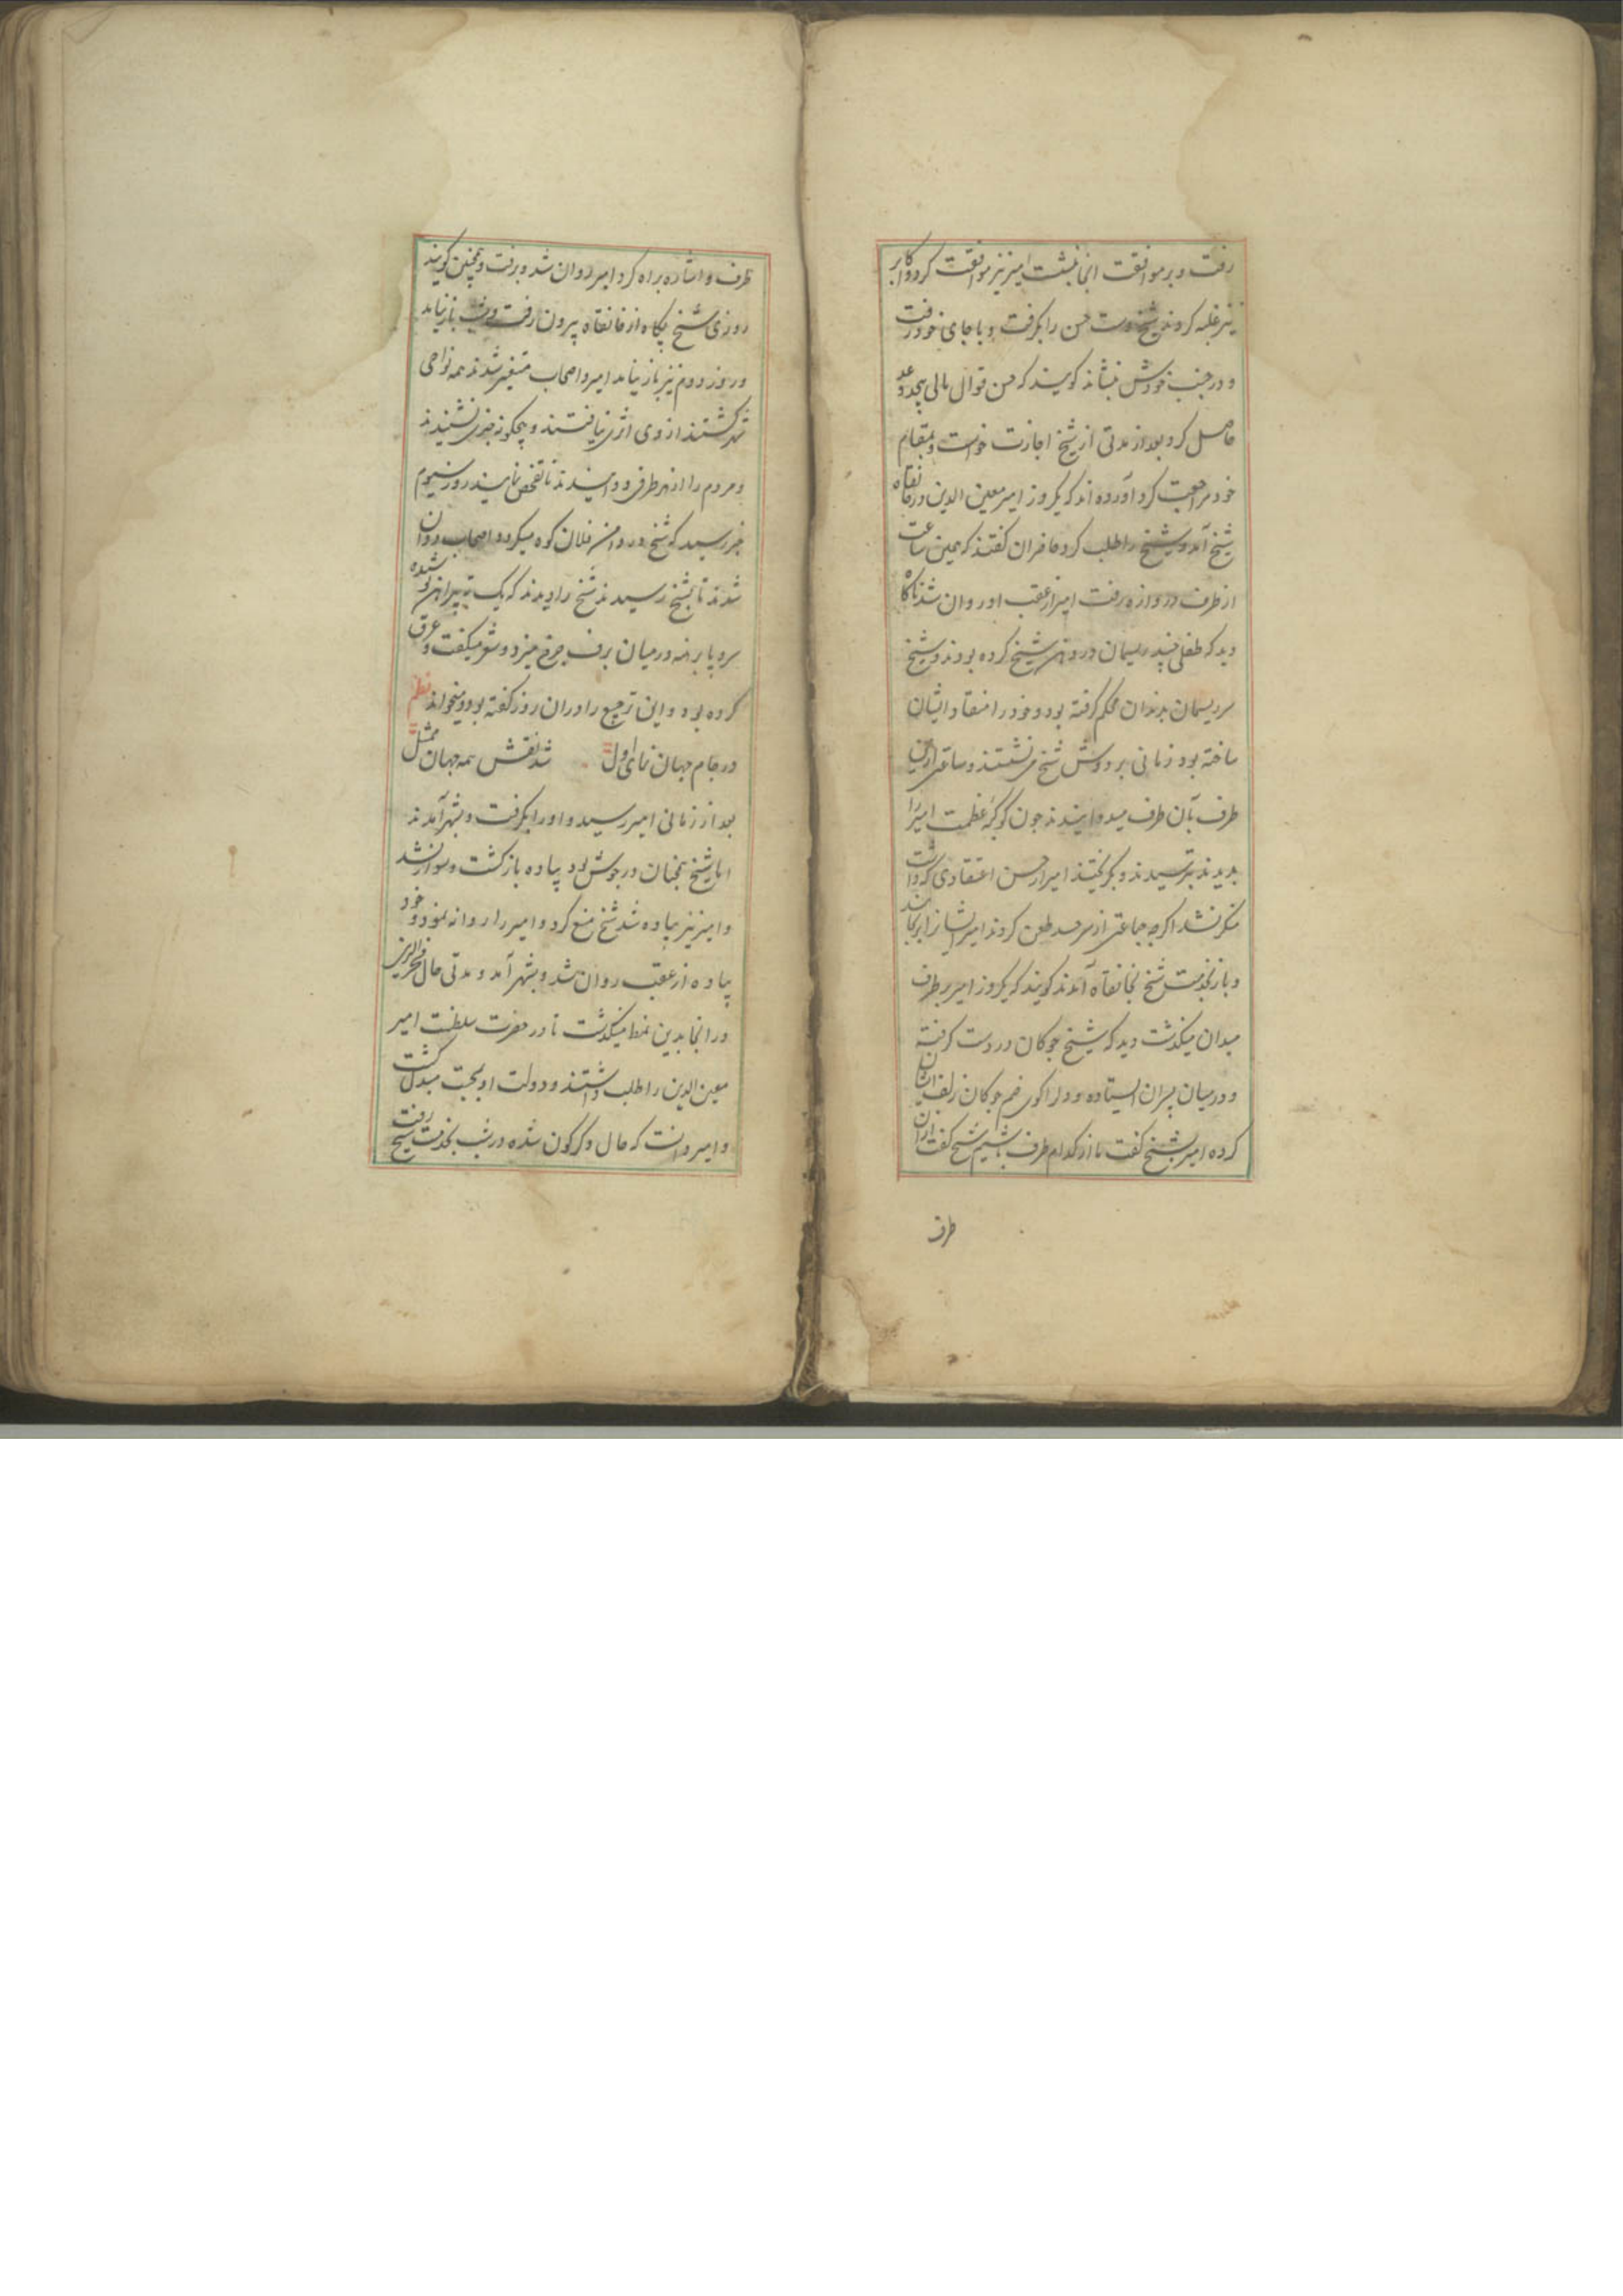 رفت و بر موافقت انجا بنشت امیر نیز موافقت کرد و اکابر
نیز غلبه کردند شیخ دست حسن را بکرفت و با جای خود رفت
و در جنب خودش بنشاند کویند که حسن قوال مالی بیحد و عد
حاصل کرد بعد از مدتی از شیخ اجازت خواست و بمقام
خود مراجعت کرد آورده اند که یکروز امیر معین الدین در خانقاه
شیخ آمد و شیخ را طلب کرد حاضران کفتند که همین ساعت
از طرف دروازه رفت امیر از عقب او روان شد ناکاه
دید که طفلی چند ریسمان در دهن شیخ کرده بودند و شیخ
سر ریسمان بدندان محکم کرفته بود و خود را منقاد ایشان
ساخته بود زمانی بر دوش شیخ می نشستند و ساعتی ازین
طرف بآن طرف میدوانیدند جون کوکبه عظمت امیر را
بدیدند بترسیدند و بکریختند امیر از حسن اعتقادی که داشت
منکر نشد اکرچه جماعتی از سر حسد طعن کردند امیر ایشانرا برنجانید
و باز بخدمت شیخ بخانقاه آمدند کویند که یکروز امیر بر طرف
میدان میکذشت دید که شیخ جوکان در دست کرفته
و در میان پسران ایستاده و دل را کوی خم جوکان زلف ایشان
کرده امیر بشیخ کفت ما از کدام طرف باشیم شیخ کفت ازان
طرف
طرف و اشاره براه کرد امیر روان شد و برفت و همچنین کویند
روزی شیخ پکاه از خانقاه بیرون رفت و شب باز نیامد
و روز دوم نیز باز نیامد امیر و اصحاب متغیر شدند همه نواحی
شهر کشتند از وی اثری نیافتند و هیچکونه خبری نشنیدند
و مردم را از هر طرفی دوانیدند تا تفحص نمایند روز سیوم
خبر رسید که شیخ در دامن فلان کوه میکردد اصحاب روان
شدند تا بشیخ رسیدند شیخ را دیدند که یک ته پیراهن پوشیده
سر و پا برهنه در میان برف چرخ میزد و شعر میکفت و عرق
کرده بود و این ترجیع را دران روز کفته بود و میخواند نظم
در جام جهان نمای اول شد نقش همه جهان ممثل
بعد از زمانی امیر رسید و او را بکرفت و بشهر آمدند
اما شیخ همچنان در جوش بود پیاده بازکشت و سوار نشد
و امیر نیز پیاده شد شیخ منع کرد و امیر را روانه نمود و خود
پیاده از عقب روان شد و بشهر آمد و مدتی حال فخرالدین
در انجا بدین نمط میکذشت تا در حضرت سلطنت امیر
معین الدین را طلب داشتند و دولت او بمحنت مبدل کشت
و امیر دانست که حال دکرکون شده در شب بخدمت شیخ رفت